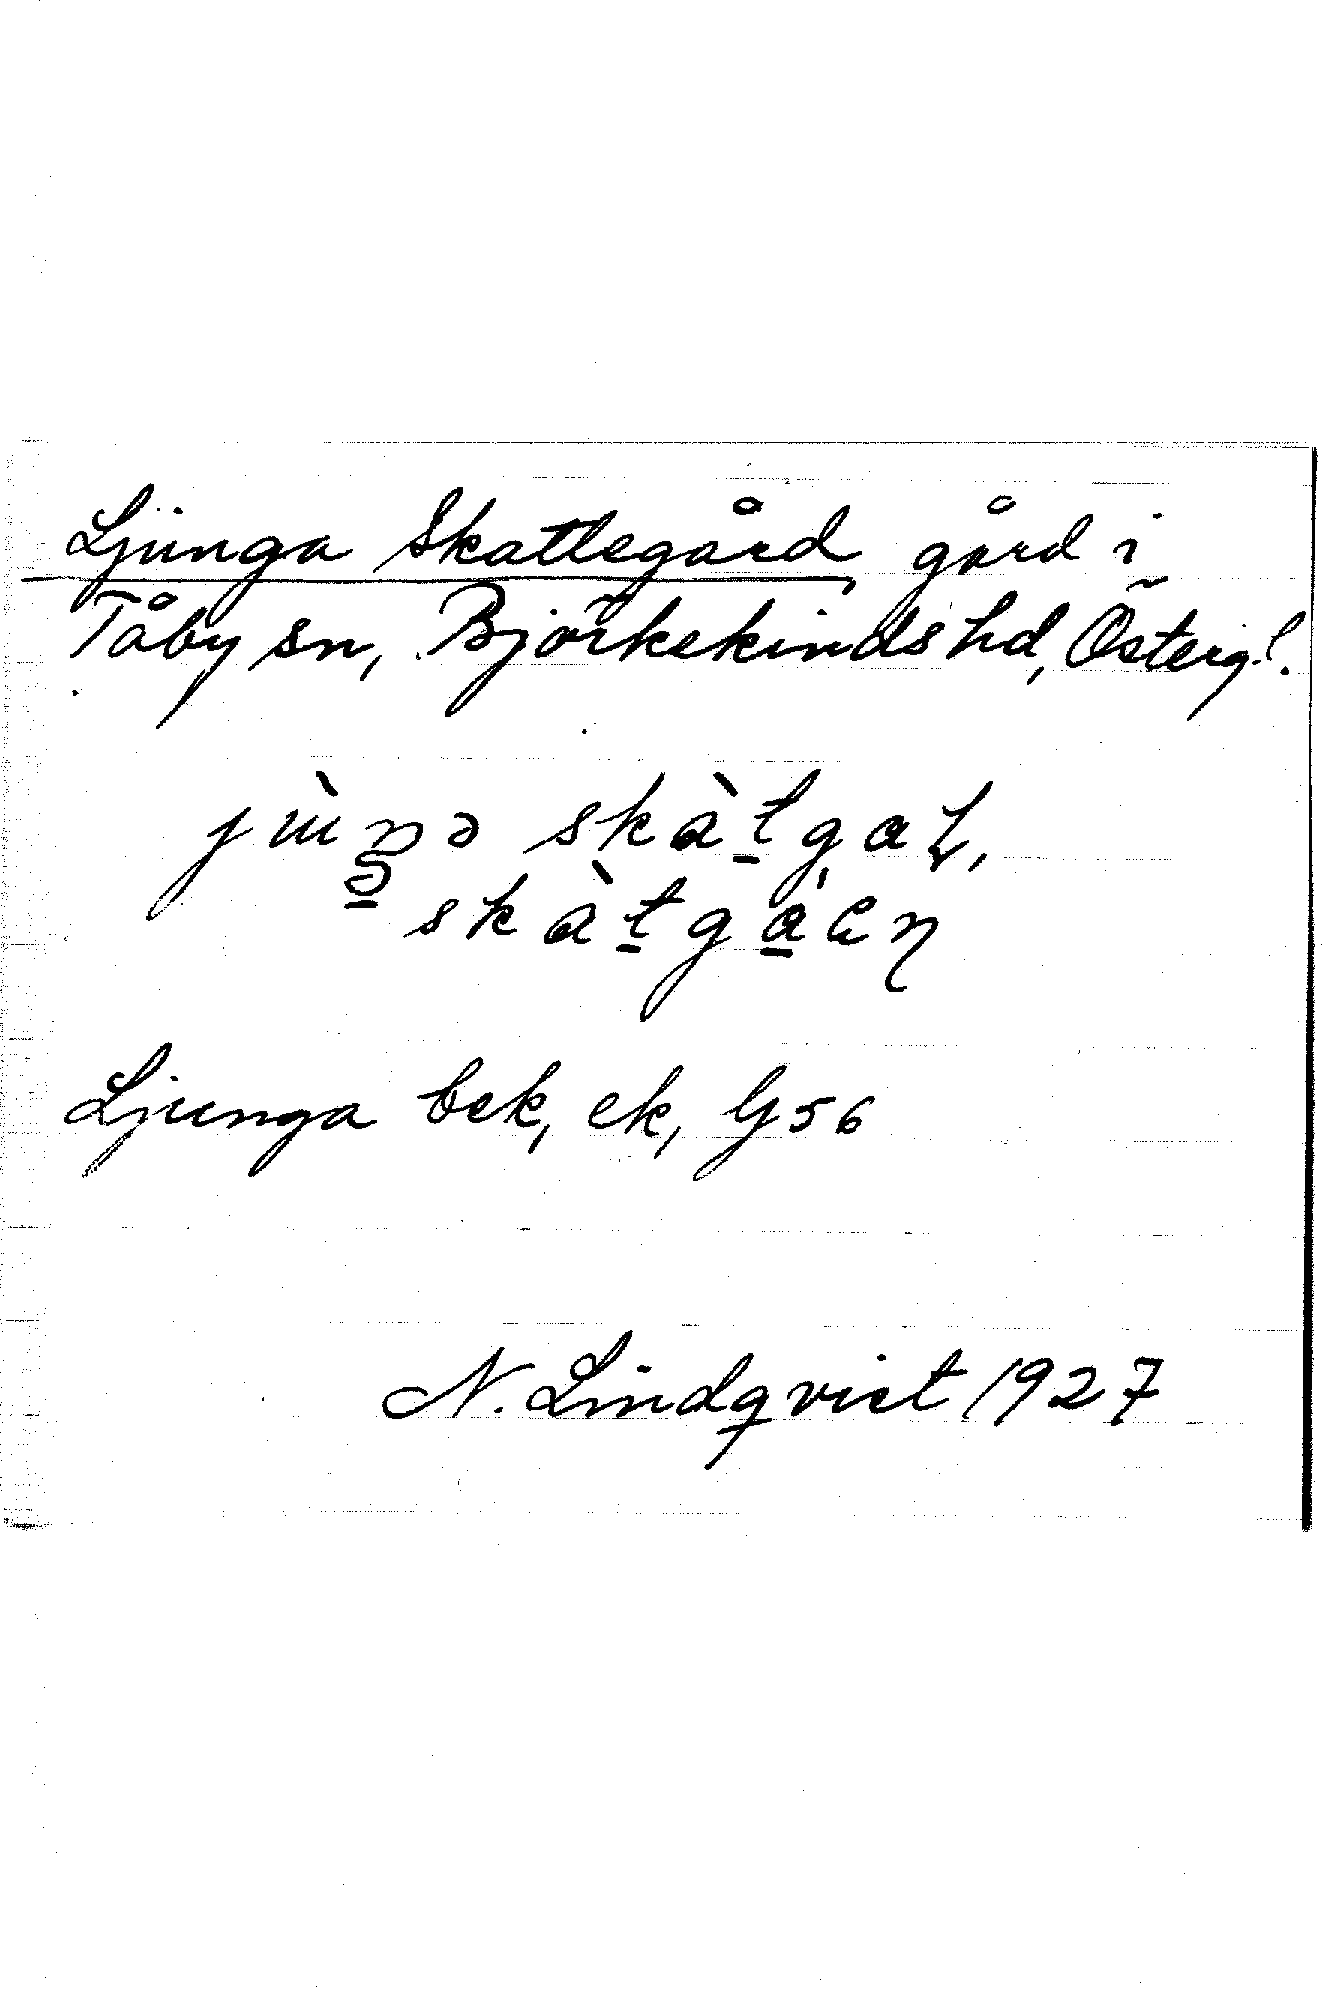 Ljunga Skattegård, gård i
Tåby sn, Björkekinds hd, Östergl.
skàtgaɖ,
skàtgàɳ
Ljunga bek, ek, Gj 56
N. Lindqvist 1927